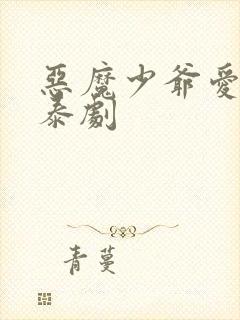 惡魔少爺愛
泰劇
青蔓